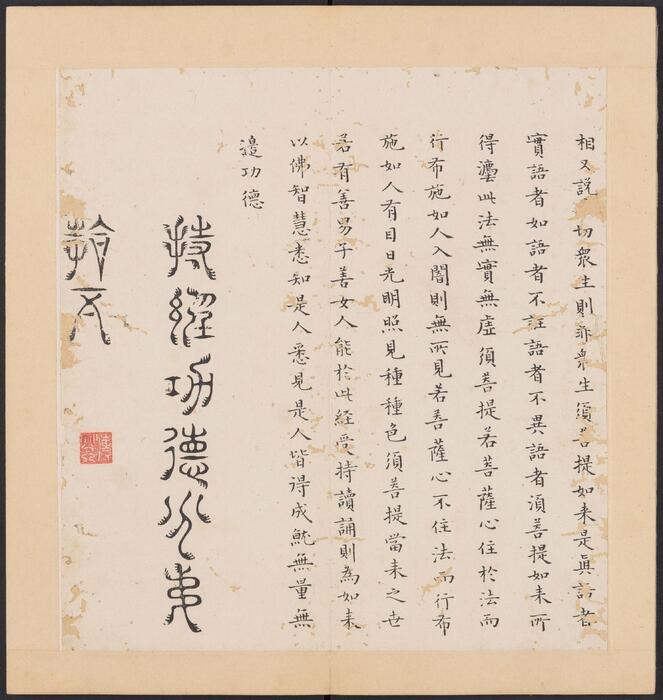 相又說 切衆生則非衆生須菩提如来是真語者
實語者如語者不誑語者不異語者湏菩提如来所
得灋此法無實無虛須菩提若菩薩心住於法而
行布施如人入闇則無所見若善薩心不住法而行布
施如人有目日光明照見種種色須菩提當来之世
若有善男子善女人能於此経受持讀誦則為如来
以佛智慧悉知是人悉見是人皆得成就無量無
邊功德
持經功德分弟
拾五